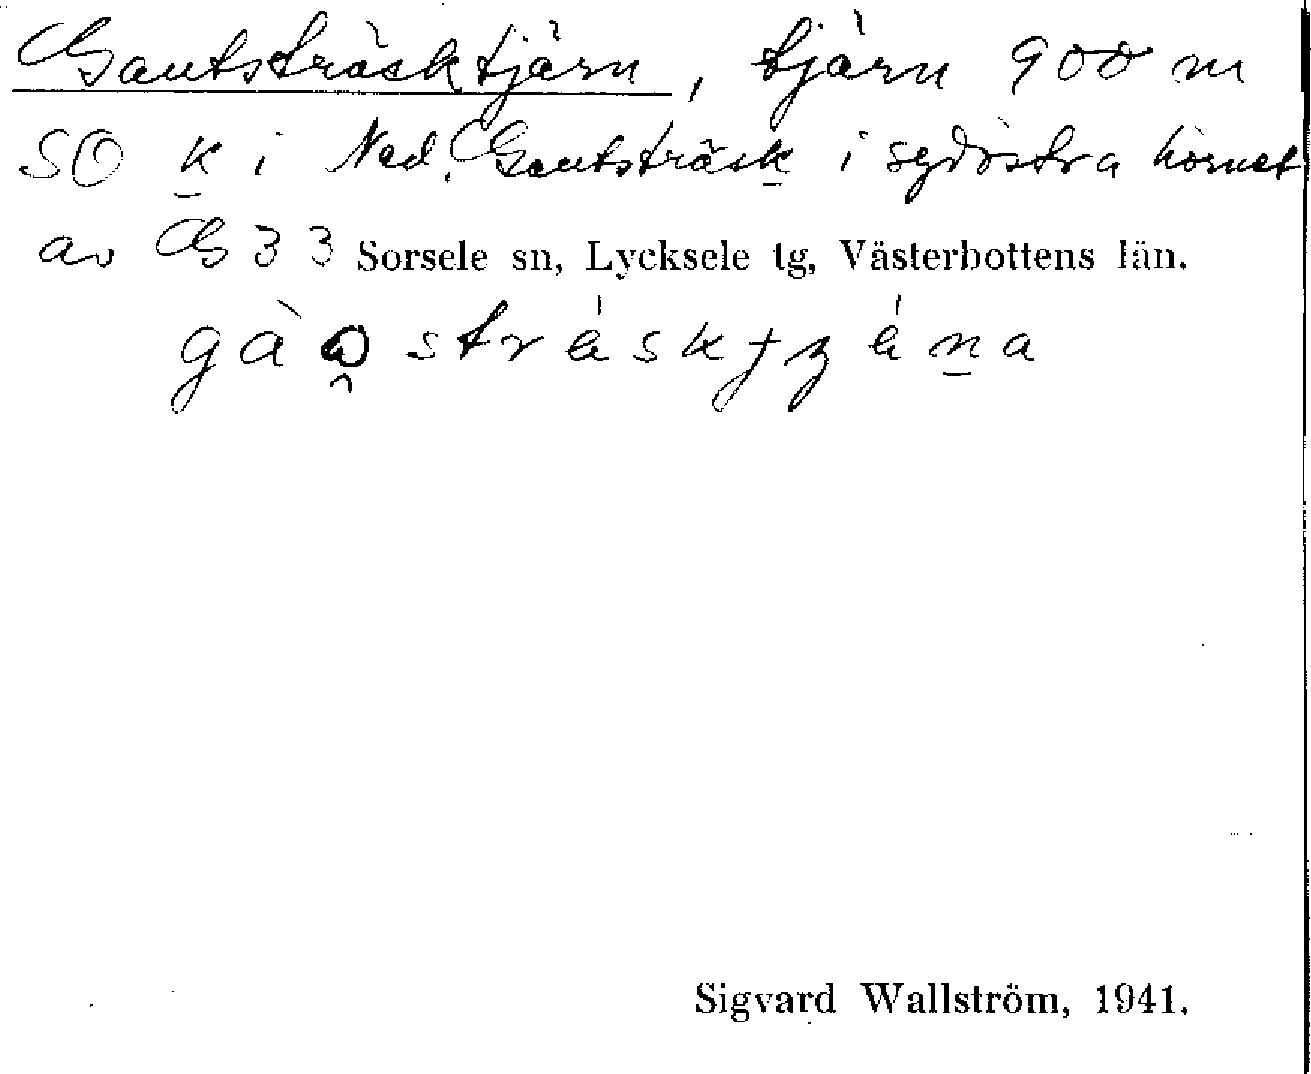 Gautsträsktjärn, tjärn 900 m
SO k i Ned. Gautsträsk i sydöstra hörnet
av G 33 Sorsele sn, Lycksele tg, Västerbottens län.
Sigvard Wallström, 1941.